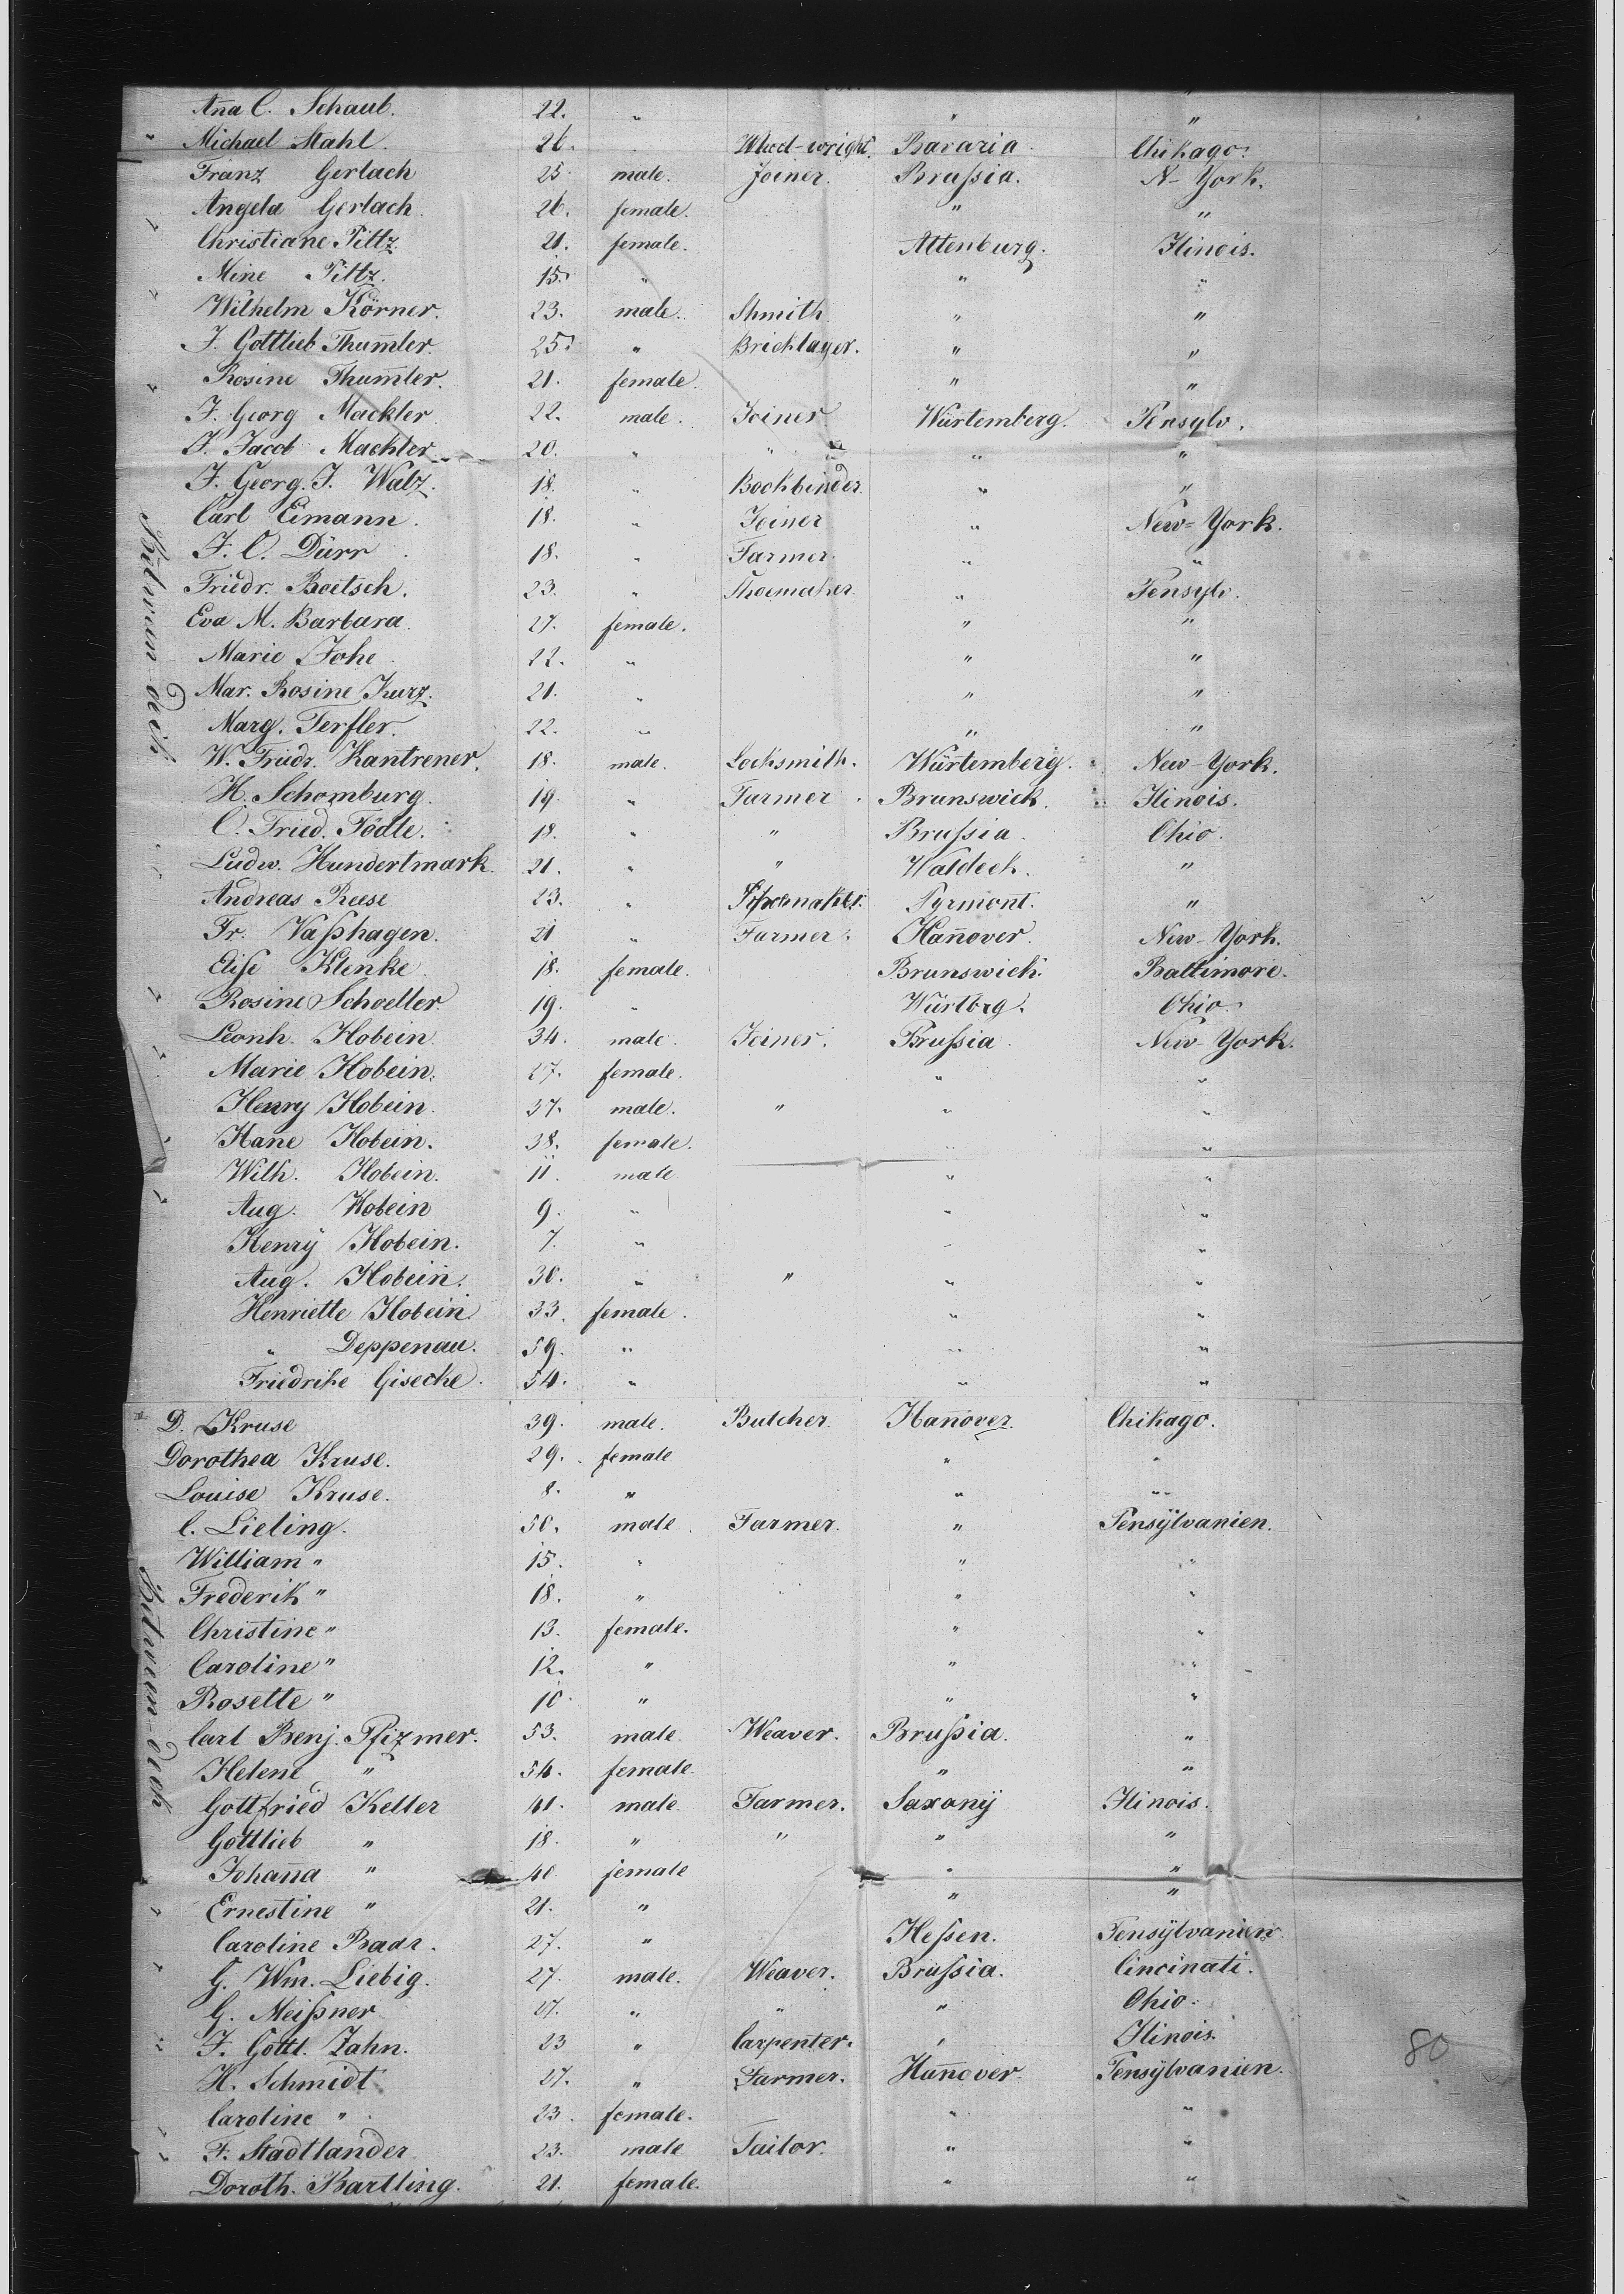 Aña C. Schaub. 22. " " "
Michael Stahl. 26. Wheel-wright. Bavaria. Chikago.
Franz Gerlach 25. male. Joiner. Prußia. N-York.
Angela Gerlach. 26. female. " "
Christiane Piltz. 21. female. Altenburg. Ilinois.
Mine Piltz. 15. " " "
Wilhelm Körner. 23. male. Shmith " "
J. Gottlieb Thum̄ler. 25. " Bricklayer. " "
Rosine Thum̄ler. 21. female. " "
J. Georg Mackler. 22. male. Joiner Würtemberg. Pensylv.
J. Jacob Mackler. 20. " " " "
J. Georg. J. Walz. 18. " Bookbinder. " "
Carl Eimann. 18. " Joiner " New-York.
J. C. Dürr. 18. " Farmer. " "
Friedr. Boetsch. 23. " Shoemaker. " Pensylv.
Eva M. Barbara. 27. female. " "
Marie Johe. 22. " " "
Mar. Rosine Kurz. 21. " " "
Marg. Terfler. 22. " " "
W. Friedr. Kantrener. 18. male. Locksmith. Würtemberg. New-York.
H. Schomburg. 19. " Farmer. Brunswick. Ilinois.
C. Fried. Födte. 18. " " Prußia. Ohio.
Ludw. Hundertmark. 21. " " Waldeck. "
Andreas Reese 23. " Shoemaker. Pyrmont. "
Fr. Vaßhagen. 21 " Farmer. Hañover. New-York.
Elise Klenke. 18. female. Brunswick. Baltimore.
Rosine Schoeller. 19. " Würtbrg. Ohio.
Leonh. Hobein. 34. male. Joiner. Prußia. New-York.
Marie Hobein. 27. female. " "
Henry Hobein. 37. male. " " "
Hane Hobein. 38. female. " "
Wilh. Hobein. 11. male " "
Aug. Hobein 9. " " "
Henrÿ Hobein. 7. " " "
Aug. Hobein. 30. " " " "
Henriette Hobein 33. female. " "
" Deppenau. 59. " " "
Friedrike Gisecke. 54. " " "
Between-deck
D. Kruse 39. male. Butcher. Hañover. Chikago.
Dorothea Kruse. 29. female " "
Louise Kruse. 8. " " "
C. Lieling. 50. male. Farmer. " Pensÿlvanien.
William " 15. " " "
Frederik " 18. " " "
Christine " 13. female. " "
Caroline " 12. " " "
Rosette " 10. " " "
Carl Benj. Pfizmer. 53. male. Weaver. Prußia. "
Helene " 54. female. " "
Gottfried Keller 41. male. Farmer. Saxonÿ Ilinois.
Gottlieb " 18. " " " "
Johaña " 40. female " "
Ernestine " 21. " " "
Caroline Badr. 27. " Heßen. Pensÿlvanien.
G. Wm. Liebig. 27. male. Weaver. Prußia. Cincinati.
G. Meißner 27. " " " Ohio.
J. Gottl. Zahn. 23 " Carpenter. " Ilinois.
H. Schmidt 27. " Farmer. Hañover. Pensÿlvanien.
Caroline " 23. female. " "
F. Stadtlander. 23. male Tailor. " "
Doroth. Bartling. 21. female. " "
Between-deck
80